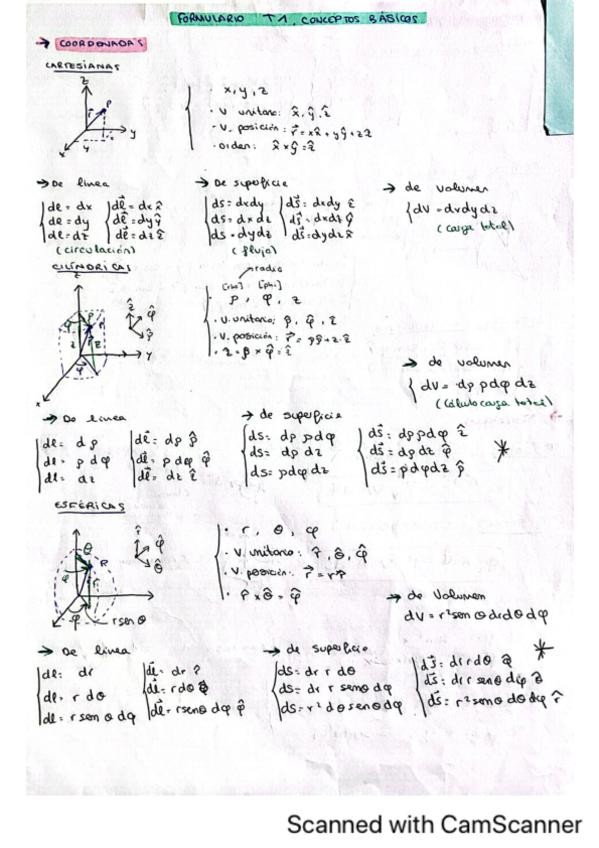 FORMULARIO T1. CONCEPTOS BÁSICOS
→ COORDENADAS
CARTESIANAS
z
P
y
x
· x, y, z
· V unitario: x̂, ŷ, ẑ
· V. posición: r⃗ = xx̂ + yŷ + zẑ
· orden: x̂ × ŷ = ẑ
→ De línea
dl = dx
dl = dy
dl = dz
d⃗l = dx x̂
d⃗l = dy ŷ
d⃗l = dz ẑ
(circulación)
→ De superficie
ds = dxdy
ds = dxdz
ds = dydz
d⃗s = dxdy ẑ
d⃗s = dxdz ŷ
d⃗s = dydz x̂
(flujo)
→ de volumen
dV = dxdydz
(carga total)
CILÍNDRICAS
radio
[rho] [phi]
ρ, φ, z
· V. unitario: ρ̂, φ̂, ẑ
· V. posición: r⃗ = ρρ̂ + z·ẑ
ρ̂ × φ̂ = ẑ
→ de volumen
dV = dρ ρdφ dz
(Cálculo carga total)
→ De línea
dl = dρ
dl = ρ dφ
dl = dz
d⃗l = dρ ρ̂
d⃗l = ρ dφ φ̂
d⃗l = dz ẑ
→ de superficie
ds = dρ ρdφ
ds = dρ dz
ds = ρdφ dz
d⃗s = dρρdφ ẑ
d⃗s = dρ dz φ̂
d⃗s = ρdφdz ρ̂
ESFÉRICAS
θ
r sen θ
· r, θ, φ
· V. unitario: r̂, θ̂, φ̂
· V. posición: r⃗ = rr̂
· r̂ × θ̂ = φ̂
→ de Volumen
dV = r²sen θ drdθ dφ
→ De línea
dl = dr
dl = r dθ
dl = r sen θ dφ
d⃗l = dr r̂
d⃗l = rdθ θ̂
d⃗l = rsenθ dφ φ̂
→ de superficie
ds = dr r dθ
ds = dr r senθ dφ
ds = r² dθ senθ dφ
d⃗s = dr r dθ φ̂
d⃗s = dr r senθ dφ θ̂
d⃗s = r²senθ dθ dφ r̂
Scanned with CamScanner